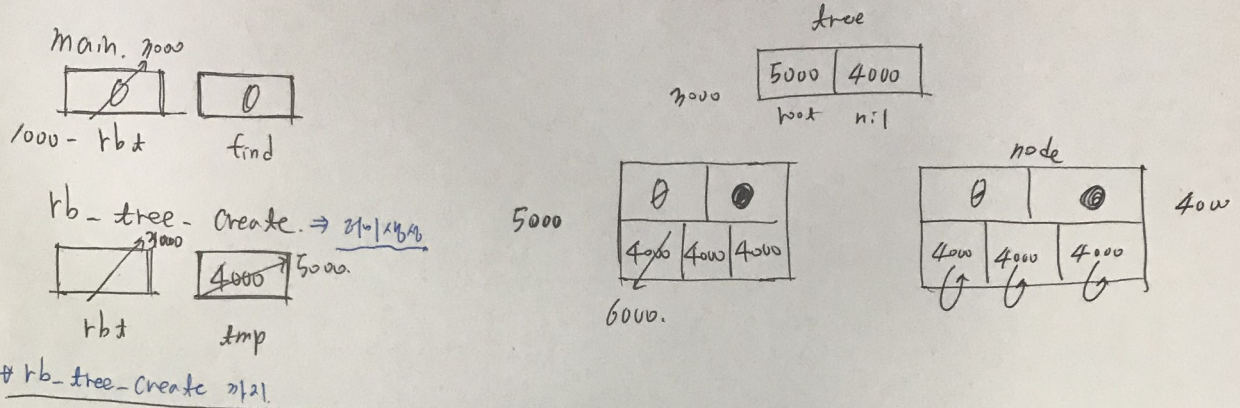 main. 3000
0 0
1000 - rbt find
rb_tree_create. ⇒ 더미생성
3000
4000 5000.
rbt tmp
* rb_tree_create 까지
tree
3000 5000 4000
root nil
5000
0
4000 4000 4000
6000.
node
0
4000 4000 4000
4000